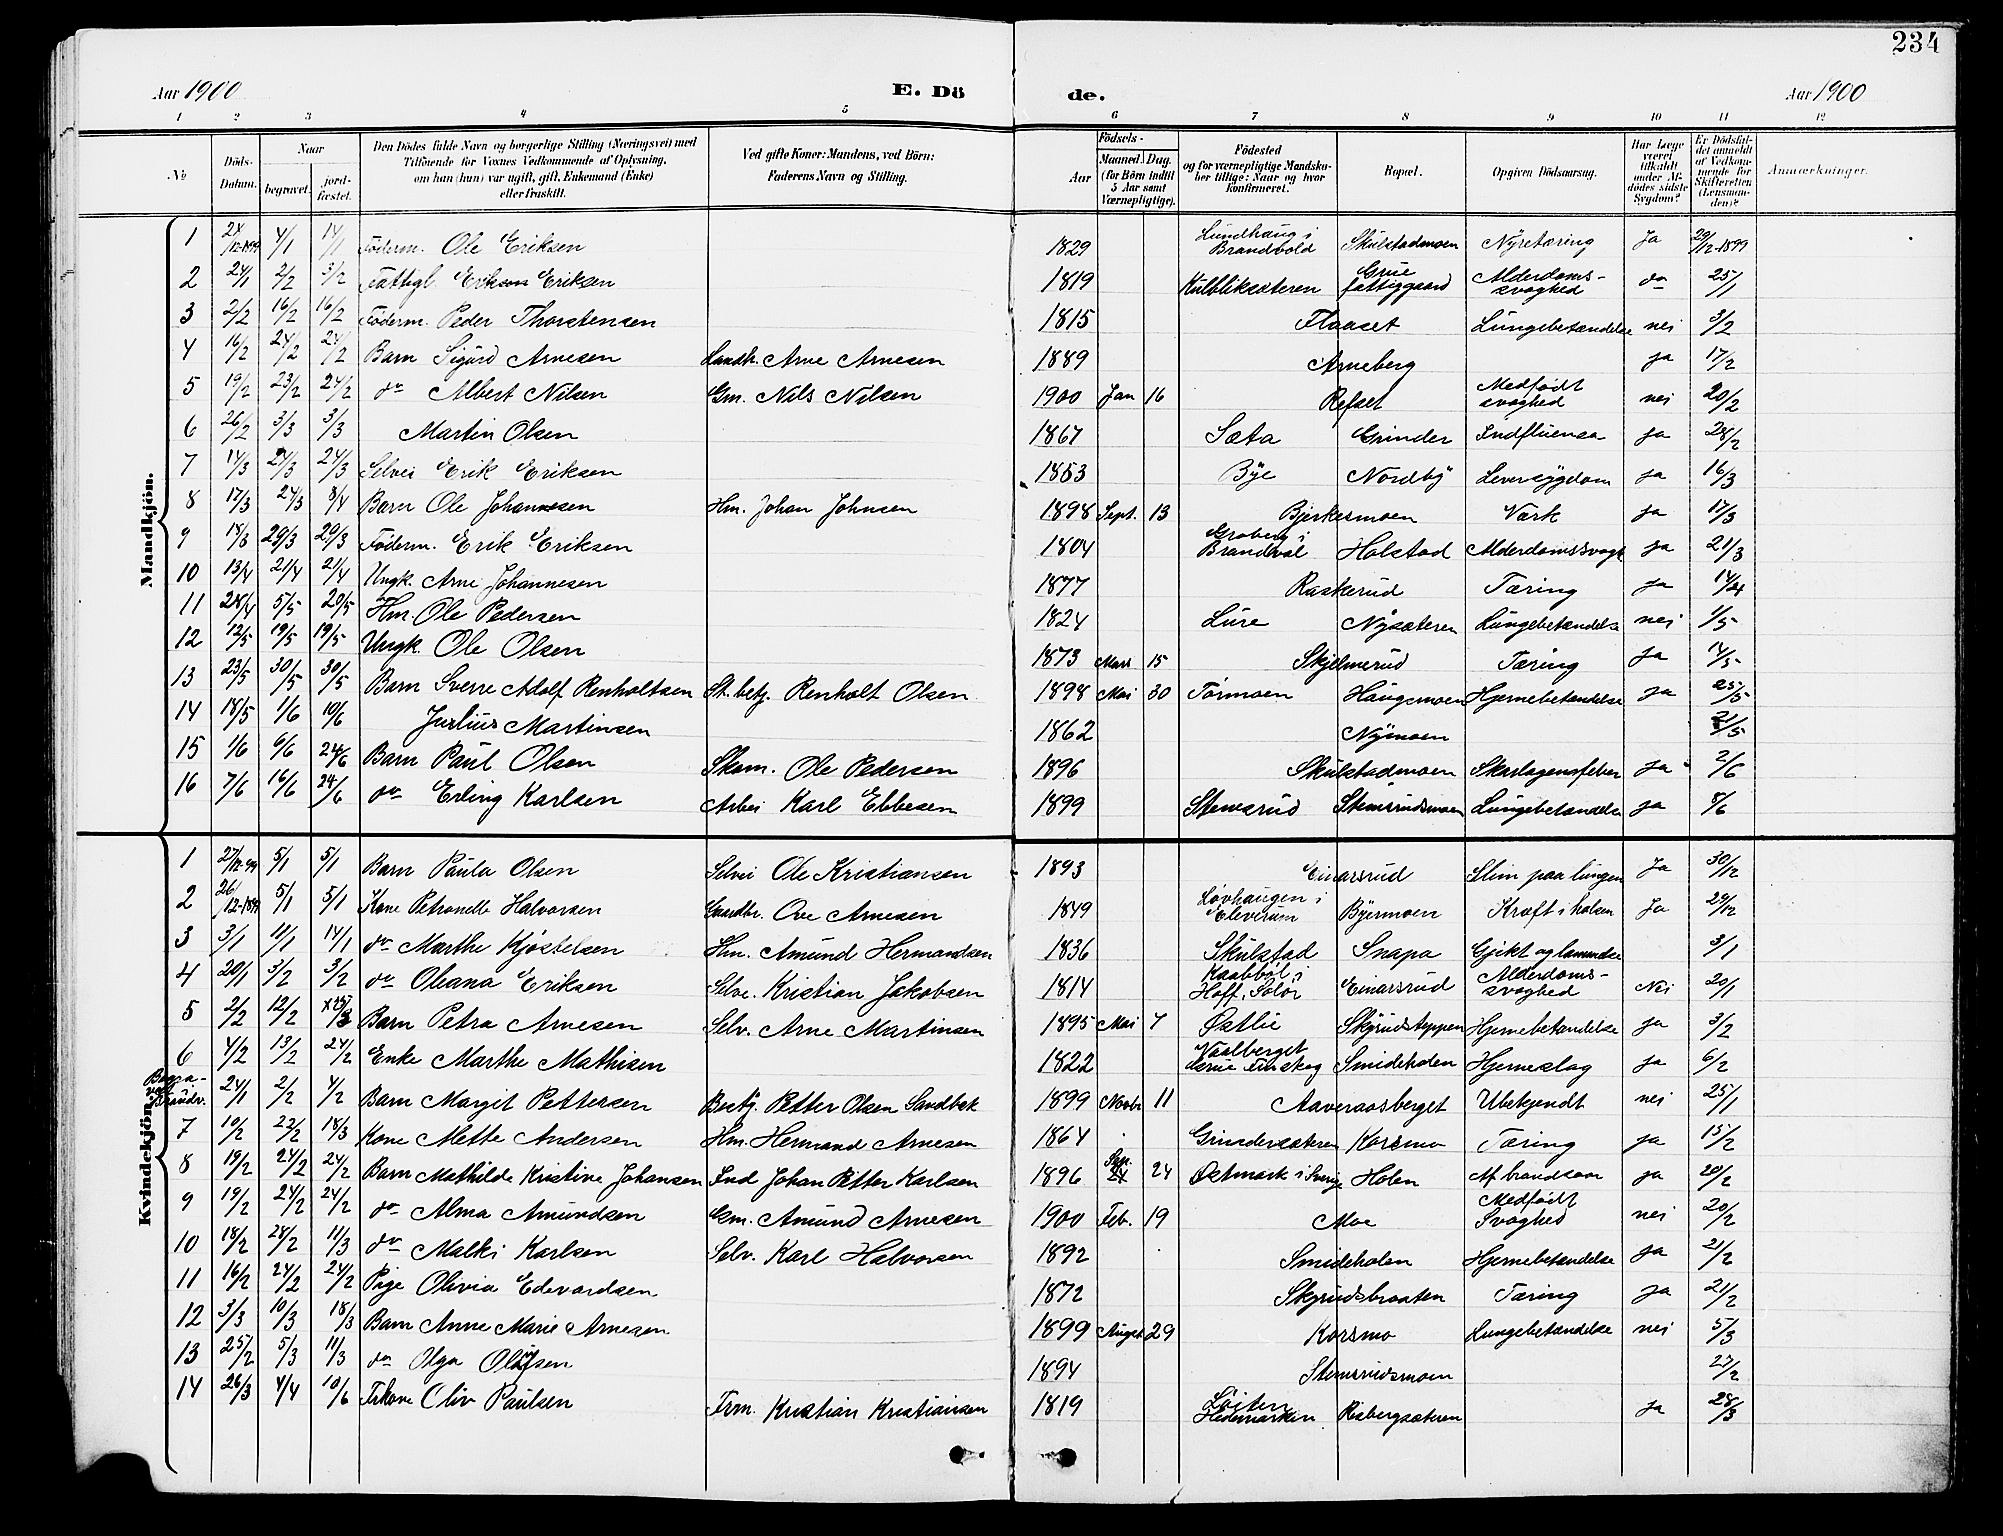 234
Aar 1900 E. Dö de. Aar 1900
1 2 3 4 5 6 7 8 9 10 11 12
No
Döds-Datum.
Naar
begravet.
jordfæstet.
Den Dödes fulde Navn og borgerlige Stilling (Næringsvei) med
Tilföiende for Voxnes Vedkommende af Oplysning,
om han (hun) var ugift, gift, Enkemand (Enke)
eller fraskilt.
Ved gifte Koner: Mandens, ved Börn:
Faderens Navn og Stilling.
Födsels-
Aar
Maaned. Dag.
(for Börn indtil
5 Aar samt
Værnepligtige).
Födested
og for værnepligtige Mandska-
ber tillige: Naar og hvor
konfirmeret.
Bopæl.
Opgiven Dödsaarsag.
Har Læge
været
tilkaldt
under Af-
dödes sidste
Sygdom?
Er Dödsfal-
det anmeldt
af Vedkom-
mende for
Skifteretten
(Lensman-
den)?
Anmærkninger.
Mandkjön.
1 4/1 14/1 Föderm. Ole Eriksen 1829 Lundhaug i Brandvold Skulstadmoen Nyretæring Ja 29/12-1899
2 24/1 2/2 3/2 Fattigl. Eriksen 1819 Kulbliksæteren Grue fattiggaard Alderdoms-svaghed do 25/1
3 2/2 16/2 16/2 Föderm. Peder Thorstensen 1815 Flaaset Lungebetændelse nei 3/2
4 16/2 24/2 24/2 Barn Sigurd Arnesen Landh. Arne Arnesen 1889 Arneberg ja 17/2
5 19/2 23/2 24/2 do Albert Nilsen Gm. Nils Nilsen 1900 Jan 16 Refset Medfödt svaghed nei 20/2
6 26/2 3/3 3/3 Martin Olsen 1867 Sæta Grinder Indfluensa ja 28/2
7 14/3 24/3 24/3 Selvei Erik Eriksen 1853 Bye Nordby Leversygdom ja 16/3
8 17/3 24/3 8/4 Barn Ole Johannesen Hm. Johan Johnsen 1898 Sept. 13 Bjerkesmoen Værk ja 17/3
9 18/3 29/3 29/3 Föderm. Erik Eriksen 1804 Groberg i Brandvål Holstad Alderdomssvagh ja 21/3
10 13/4 21/4 21/4 Ungk. Arne Johannesen 1877 Raskerud Tæring ja 14/4
11 28/4 5/5 20/5 Hm. Ole Pedersen 1824 Lure Nysæteren Lungebetændelse nei 1/5
12 12/5 19/5 19/5 Ungk. Ole Olsen 1873 Mars 15 Skjelmerud Tæring ja 14/5
13 23/5 30/5 30/5 Barn Sverre Adolf Renholtsen St. betj. Renholt Olsen 1898 Mai 30 Tørmoen Haugsmoen Hjernebetændelse ja 25/5
14 18/5 1/6 10/6 Julius Martinsen 1862 Nymoen 21/5
15 1/6 6/6 24/6 Barn Paul Olsen Skom. Ole Pedersen 1896 Skulstadmoen Skarlagensfeber ja 2/6
16 7/6 16/6 24/6 do Erling Karlsen Arbei Karl Ebbesen 1899 Stemsrud Stemsrudsmoen Lungebetændelse ja 8/6
Kvindekjön.
1 27/12-99 5/1 5/1 Barn Paula Olsen Selvei Ole Kristiansen 1893 Einarsrud Slim paa lungen Ja 30/12
2 26/12-1899 5/1 5/1 Kone Petronelle Halvorsen Gaardbr. Ove Arnesen 1849 Løvhaugen i Elverum Byermoen Kræft i halsen Ja 29/12
3 3/1 11/1 14/1 do Marthe Kjöstelsen Hm. Amund Hermandsen 1836 Skulstad Snapa Gjikt og lammelse 3/1
4 20/1 3/2 3/2 do Oleana Eriksen Selve. Kristian Jakobsen 1814 Kaabböl i Hoff, Solör Einarsrud Alderdoms-svaghed Nei 20/1
5 2/2 12/2 Barn Petra Arnesen Selv. Arne Martinsen 1895 Mai 7 Østlie Skyrudsteppen Hjernebetændelse ja 3/2
6 4/2 13/2 24/2 Enke Marthe Mathisen 1822 Vaalberget Grue Finskog Smideholen Hjerneslag ja 6/2
24/1 2/2 4/2 Barn Margit Pettersen Besty. Petter Olsen Sandbek 1899 Novbr 11 Aaveraasberget Ubekjendt nei 25/1
7 10/2 22/2 18/3 Kone Mette Andersen Hm. Hermand Arnesen 1864 Grindersæteren Korsmo Tæring ja 15/2
8 19/2 24/2 24/2 Barn Mathilde Kristine Johansen Ind Johan Petter Karlsen 1896 Sep. 24 Østmark i Sverige Holen Af brandsaar ja 20/2
9 19/2 24/2 24/2 do Alma Amundsen Gm. Amund Arnesen 1900 Feb. 19 Moe Medfödt Svaghed nei 20/2
10 18/2 28/2 11/3 do Malki Karlsen Selv. Karl Halvorsen 1892 Smideholen Hjernebetændelse ja 21/2
11 16/2 24/2 24/2 Pige Olivia Edevardsen 1872 Skyrudsbraaten Tæring ja 21/2
12 3/3 10/3 18/3 Barn Anne Marie Arnesen 1899 August 29 Korsmo Lungebetændelse nei 5/3
13 25/2 5/3 11/3 do Olga Olsen 1894 Stemsrudsmoen 27/2
14 26/3 4/4 10/6 Fkone Oliv Paulsen Frm. Kristian Kristiansen 1819 Löiten Hedemarken Risbergsæteren ja 28/3